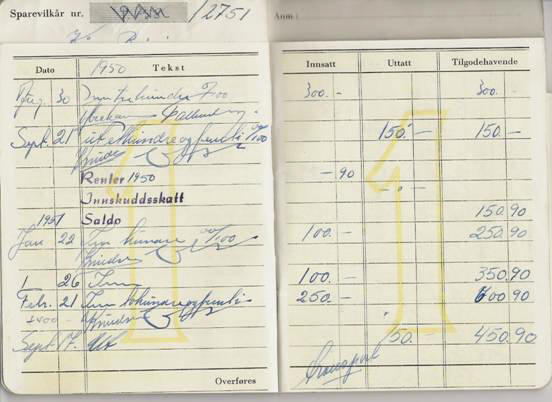 Sparevilkår nr. /2751
Anm:
Dato Tekst Innsatt Uttatt Tilgodehavende
1950
Aug. 30 Inn trehundre 7/00 300.- 300.-
Sept. 21 ut etthundreogfemti 7/00 150.- 150.-
Renter 1950 -.90
Innskuddsskatt - " -
1951 Saldo 150.90
Jan 22 Inn hundre 100.- 250.90
1 26 Inn 100.- 350.90
Febr. 21 Inn tohundreogfemti- 250.- 600.90
Sept. 17. Ut 150.- 450.90
Overføres
1
1